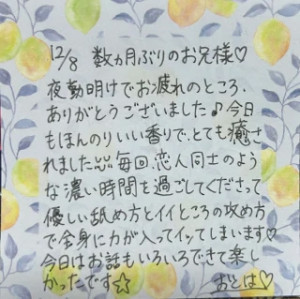 12/8 数ヵ月ぶりのお兄様♡
夜勤明けでお疲れのところ、
ありがとうございました♪今日
もほんのりいい香りで、とても癒さ
れました毎回、恋人同士のよう
な濃い時間を過ごしてくださって
優しい舐め方とイイところの攻め方
で全身に力が入ってイッてしまいます♡
今日はお話もいろいろできて楽し
かったです☆ おとは♡